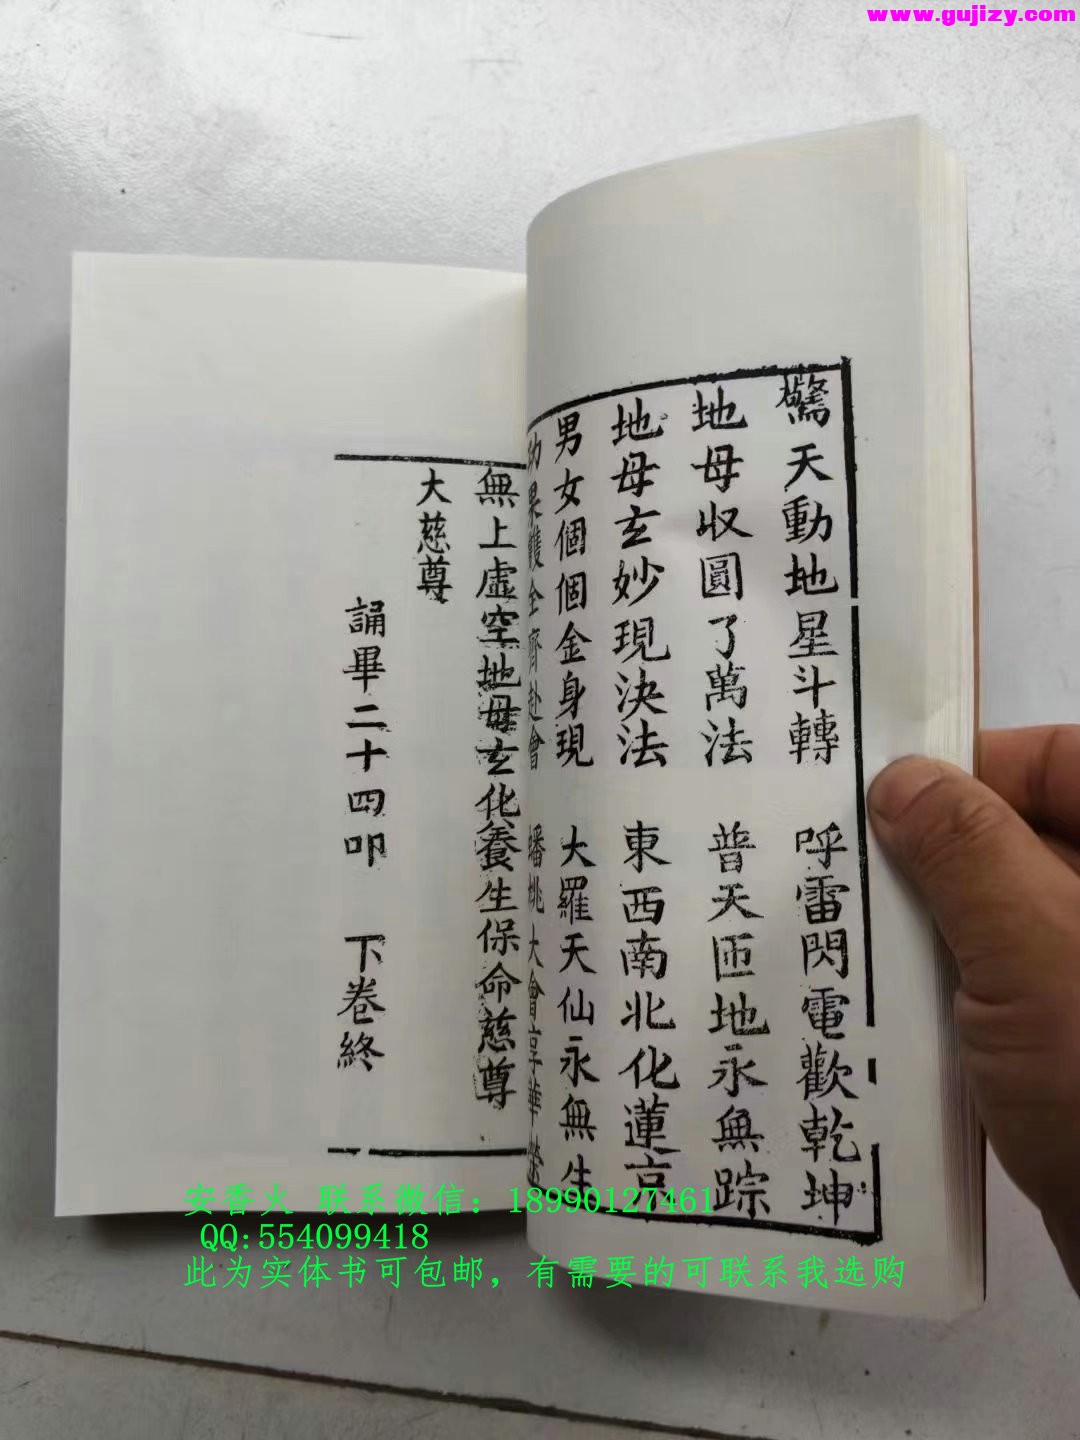 www.gujizy.com
驚天動地星斗轉 呼雷閃電歡乾坤
地母收圓了萬法 普天匝地永無踪
地母玄妙現決法 東西南北化蓮京
男女個個金身現 大羅天仙永無生
果雙全齊赴會 蟠桃大會享華
無上虛空地母玄化養生保命慈尊
大慈尊
誦畢二十四叩 下卷終
安香火 联系微信：18990127461
QQ:554099418
此为实体书可包邮，有需要的可联系我选购